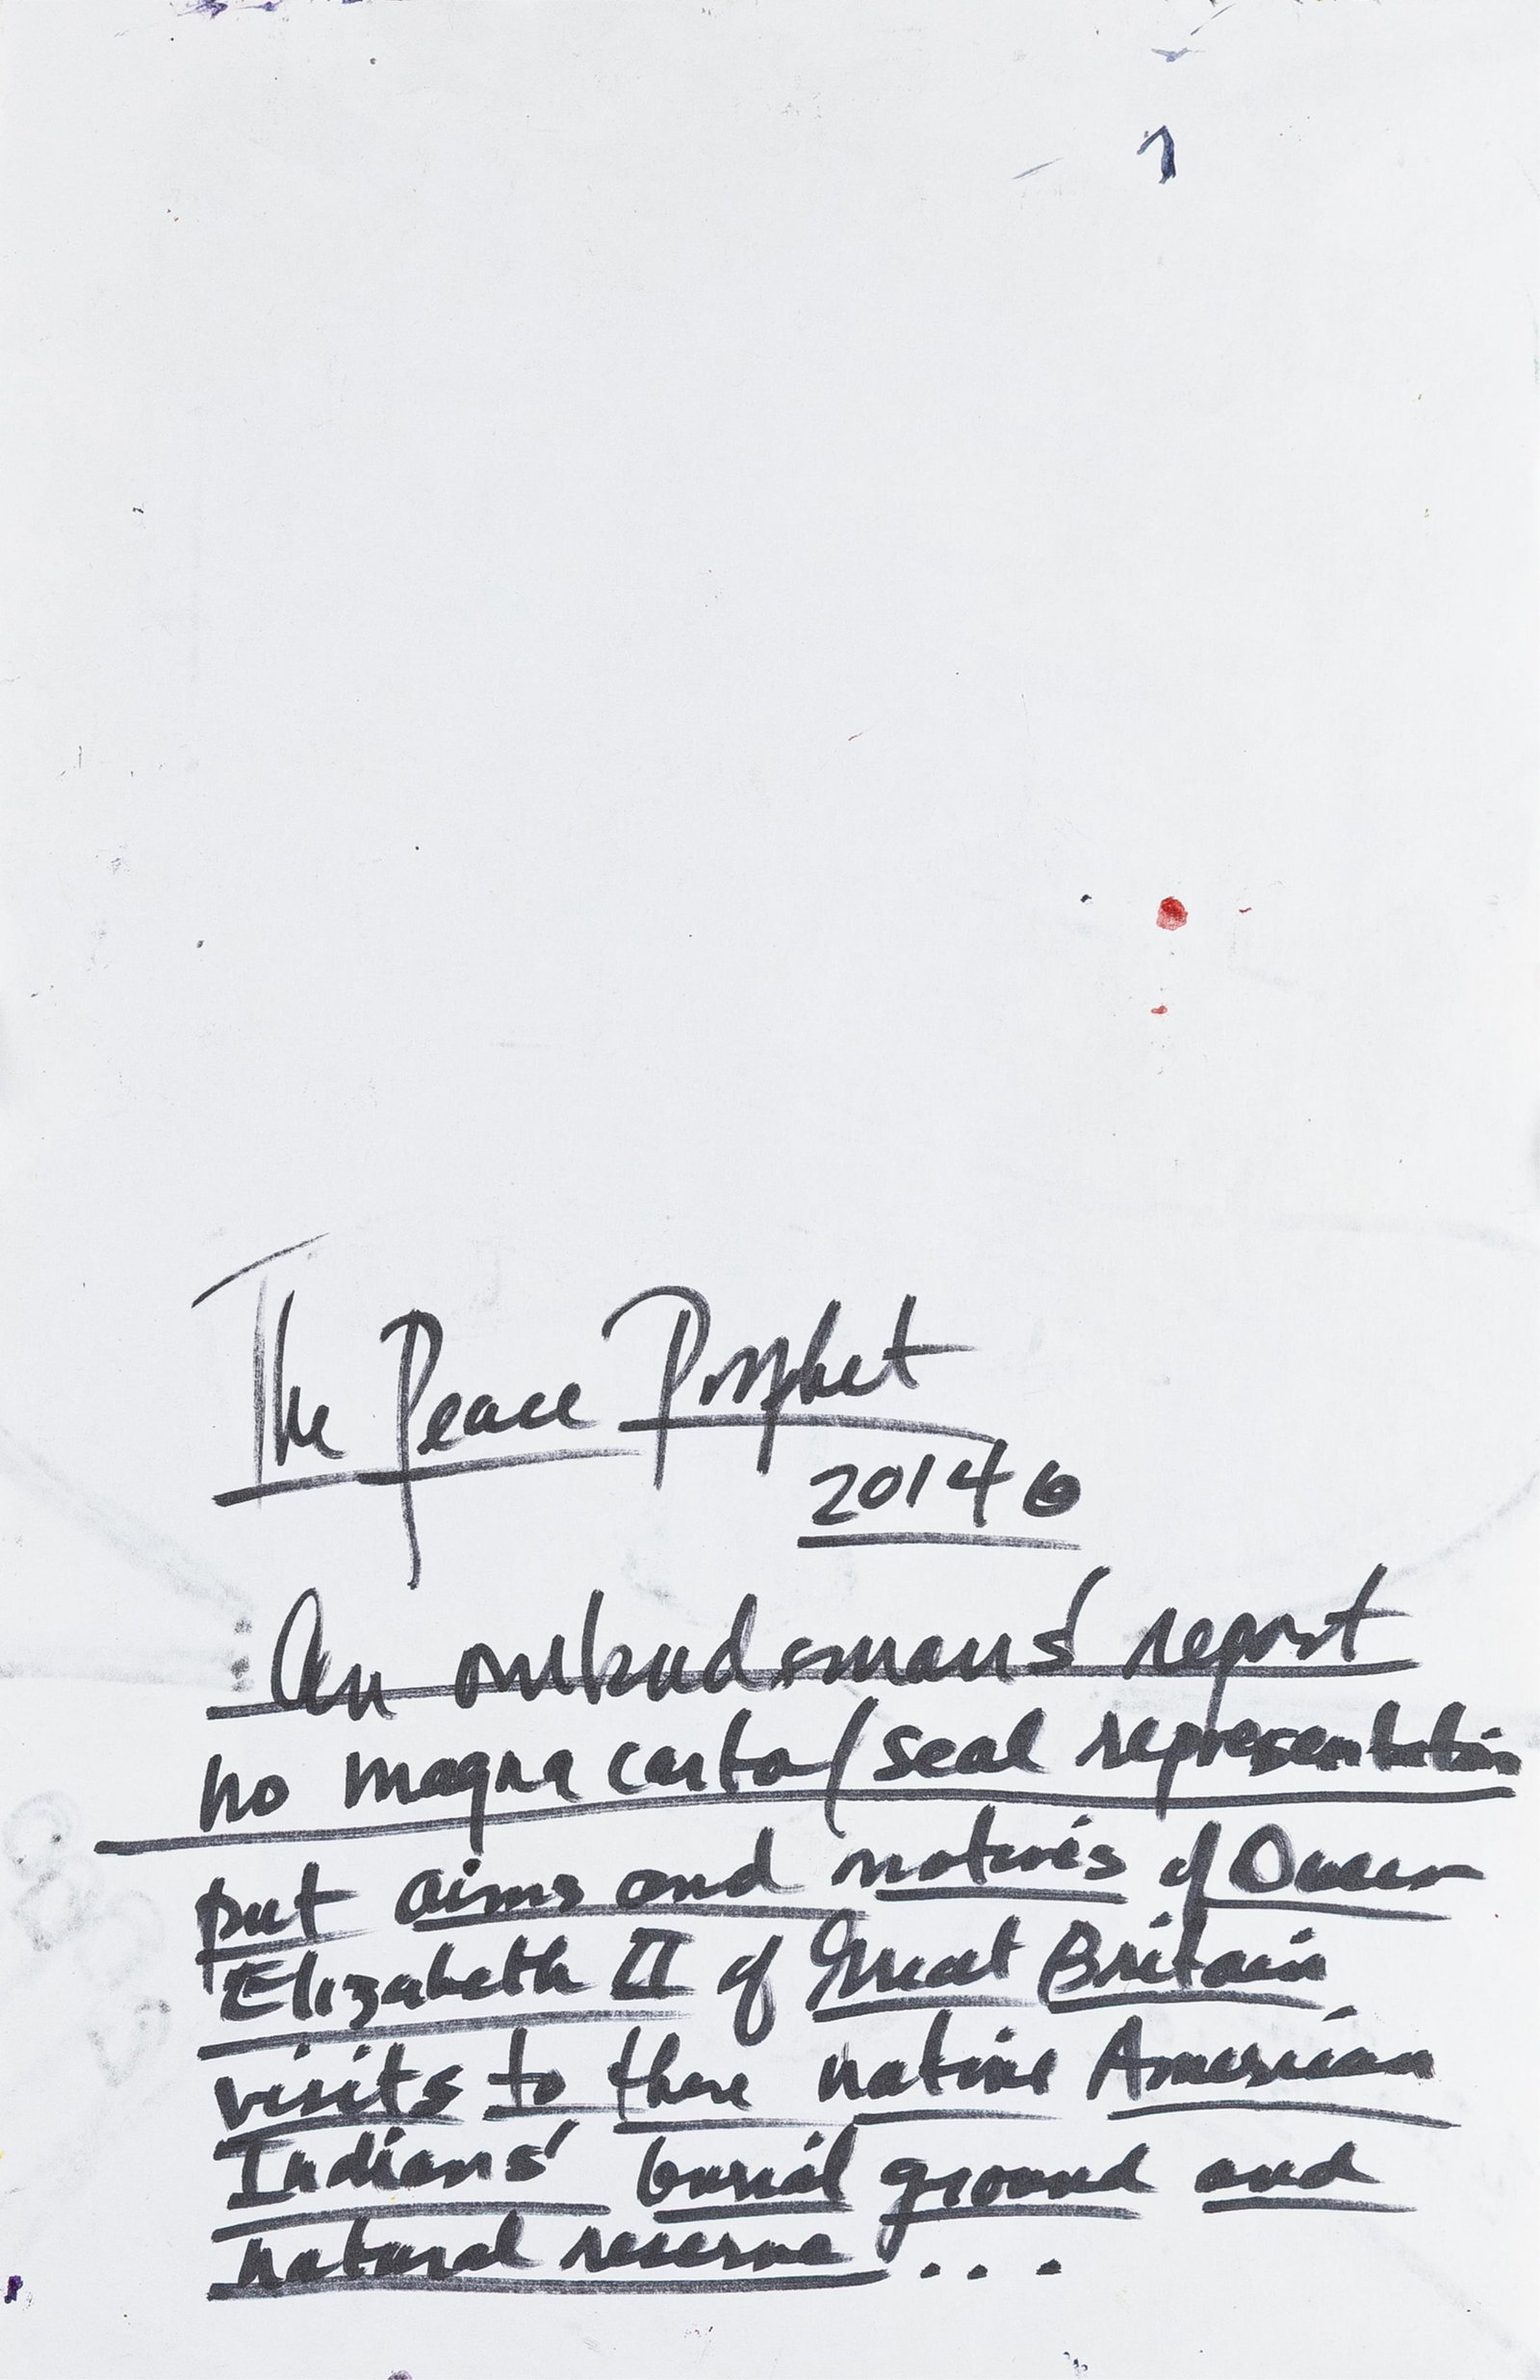 The Peace Prophet
2014 6
An ombudsmans' report
no magna carta/seal representation
put aims and motives of Queen
Elizabeth II of Great Britain
visits to there native American
Indians' burial ground and
natural reserve...